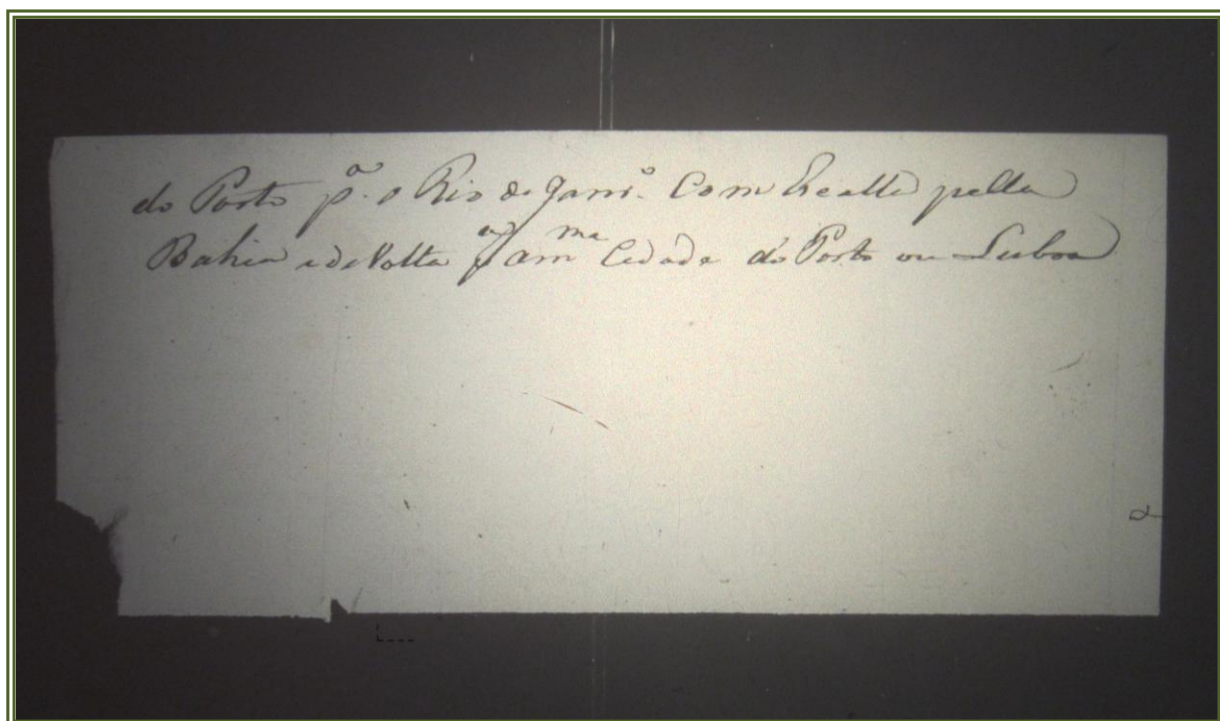 do Porto p.ª o Rio de Janr.º Com Escalla pella
Bahia e de Volta pª a mma Cidade do Porto ou Lisboa